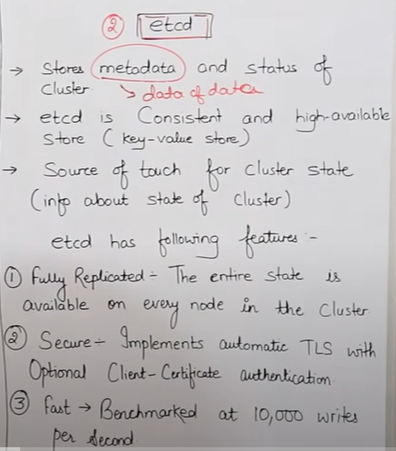 ② etcd
→ Stores metadata and status of
Cluster ↳ data of data
→ etcd is Consistent and high-available
Store (key-value store)
→ Source of touch for Cluster state
(info about state of Cluster)
etcd has following features :-
① Fully Replicated ÷ The entire state is
available on every node in the Cluster
② Secure ÷ Implements automatic TLS with
Optional Client-Certificate authentication
③ Fast → Benchmarked at 10,000 writes
per second